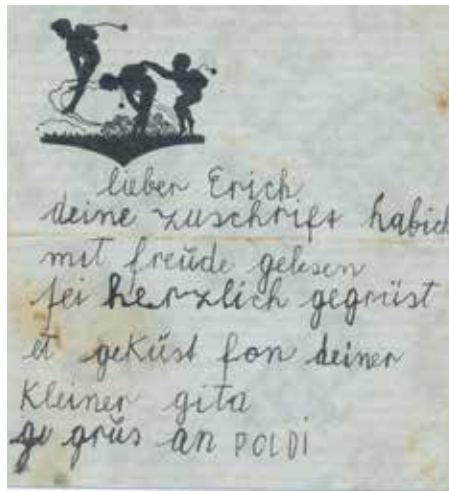 lieber Erich
deine zuschrift habich
mit freude gelesen
sei herzlich gegrüst
et geküst fon deiner
kleiner gita
grüs an POLDI